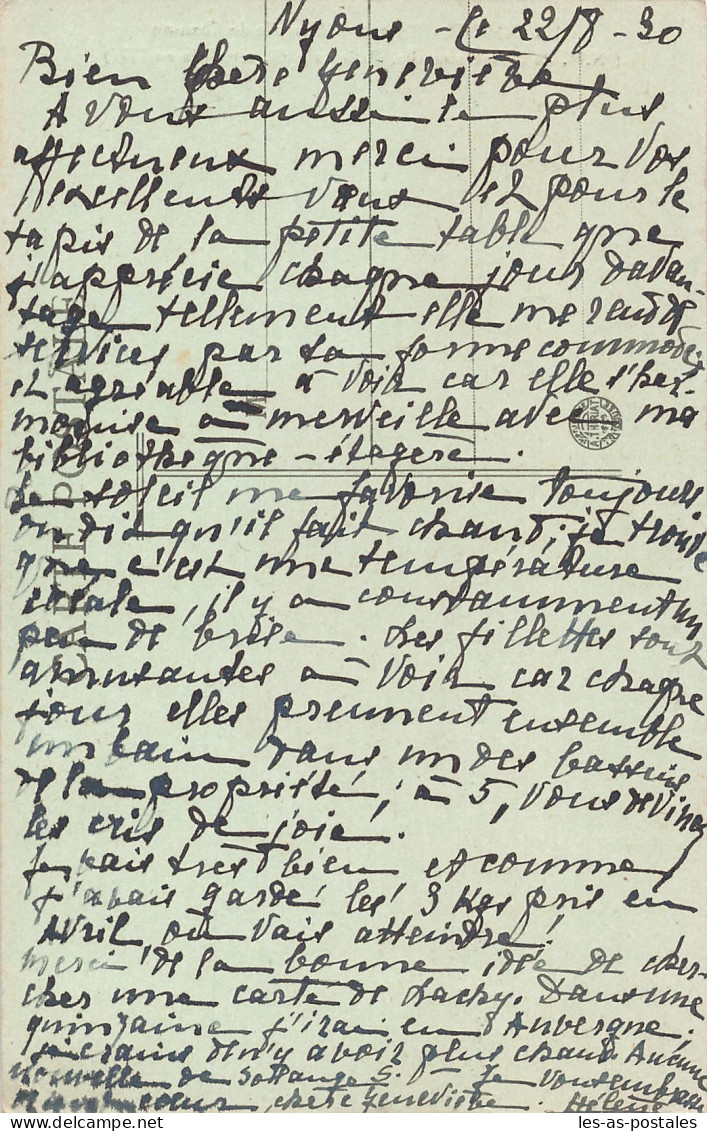 Nyons - le 22/8-30
Bien chère Geneviève
A vous aussi le plus
affectueux merci pour vos
excellents vœux et pour le
tapis de la petite table que
j'apprécie chaque jour davan-
tage tellement elle me rend de
services par sa forme commode
et agréable à voir car elle s'har-
monise à merveille avec ma
bibliothèque-étagère.
Le soleil me favorise toujours
on dit qu'il fait chaud; je trouve
que c'est une température
idéale, il y a constamment un
peu de brise. Les fillettes sont
amusantes à voir car chaque
jour elles prennent ensemble
un bain dans un des bassins
de la propriété; à 5, vous devinez
les cris de joie!
Je vais très bien et comme
j'avais gardé les 3 Kgs pris en
Avril, où vais atteindre!
Merci de la bonne idée de cher-
cher une carte de Lachy. Dans une
quinzaine j'irai en Auvergne,
je crains de n'y avoir plus chaud. Aucune
nouvelle de Solange S. Je vous embrasse
cœur, chère Geneviève. Hélène
CARTE POSTALE
www.as-postales